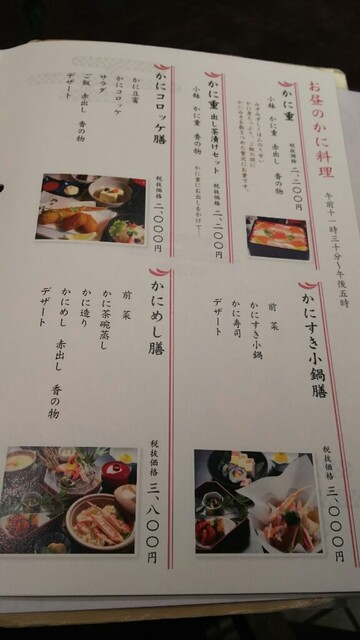 お昼のかに料理
午前十一時三十分～午後五時
かに重
税抜価格 二、二〇〇円
小鉢 かに重 赤出し 香の物
かに重 出し茶漬けセット
税抜価格 二、二〇〇円
小鉢 かに重 香の物
かに重にお出しをかけて…
かにコロッケ膳
税抜価格 二、〇〇〇円
かに豆富
かにコロッケ
サラダ
ご飯 赤出し 香の物
デザート
かにすき小鍋膳
税抜価格 三、〇〇〇円
前菜
かにすき小鍋
かに寿司
デザート
かにめし膳
税抜価格 三、八〇〇円
前菜
かに茶碗蒸し
かに造り
かにめし 赤出し 香の物
デザート